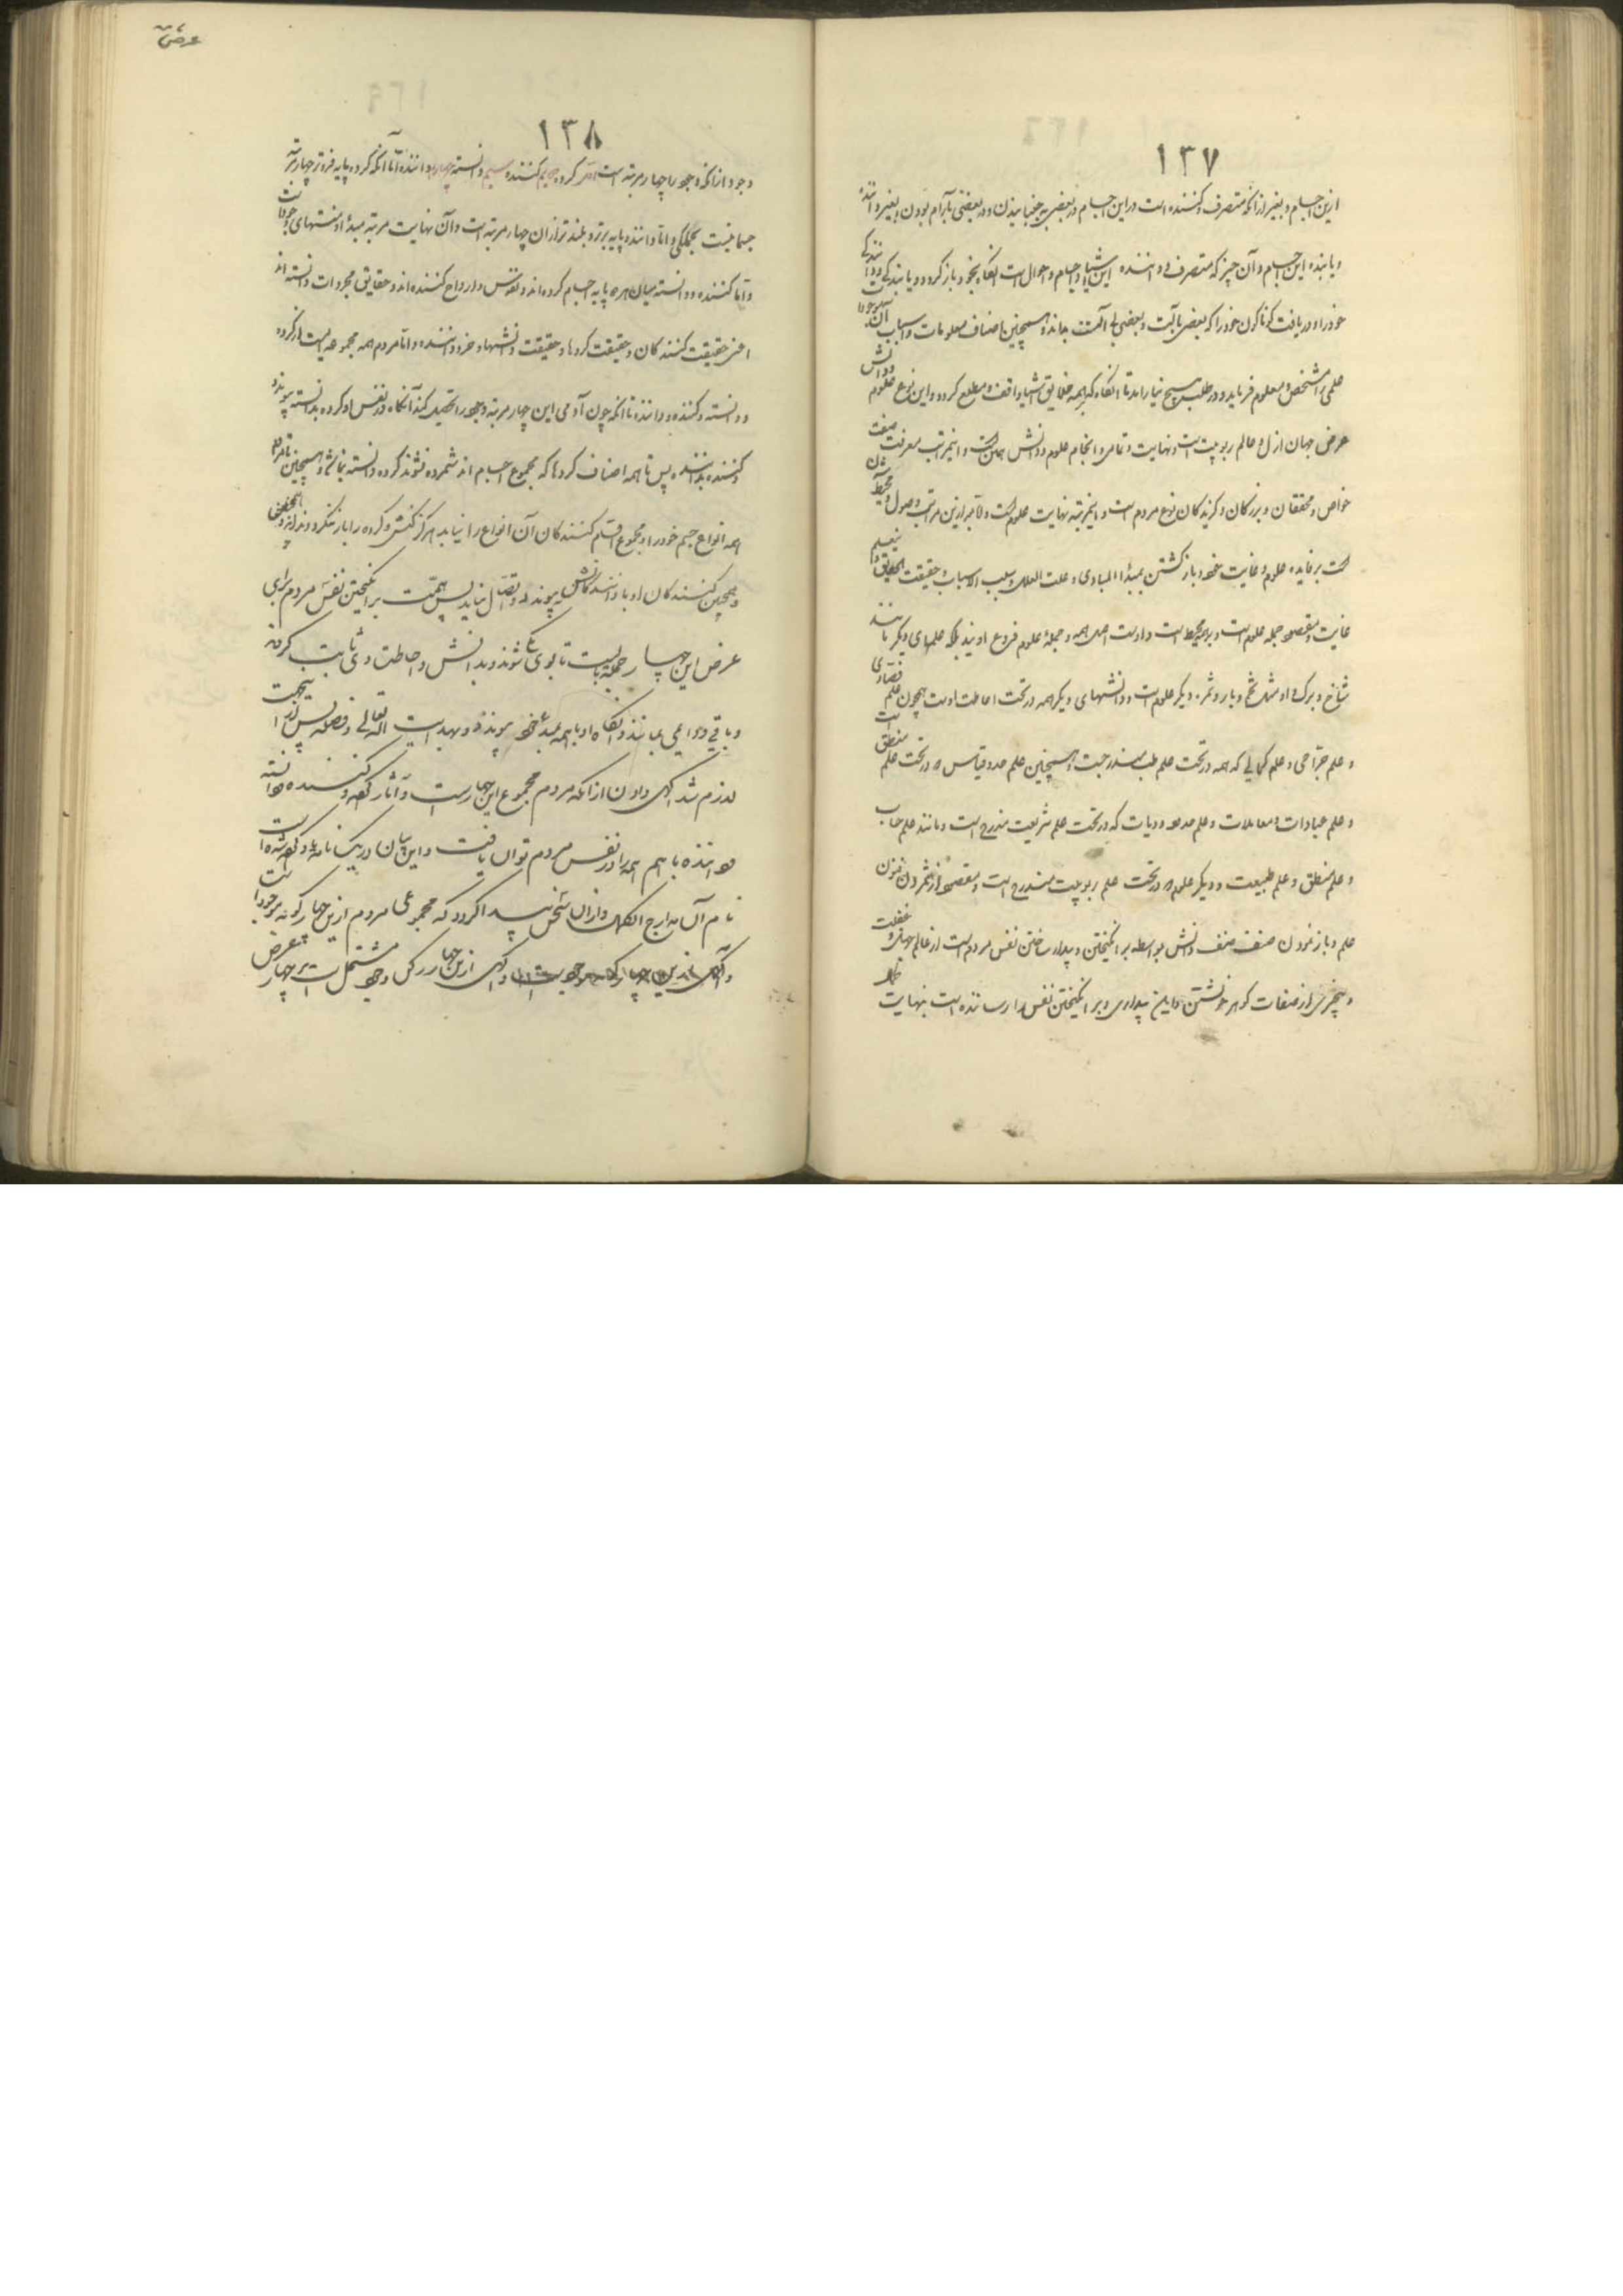 ١٣٧
ازین اجسام و بغیر از آنکه متصرف و کننده است در این اجسام در بعضی بجنبانیدن و در بعضی بآرام بودن و بغیر دانندهٔ
و یابنده این اجسام و آن چیز که متصرف و داننده این اشیا و اجسام و احوال است آنگاه بخود باز گردد و یابندگی و دانندگی
خود را و دریافت گوناگون خود را که بعضی بآلت و بعضی بی آلت بداند و همچنین اصناف معلومات و اسباب آن
علمی را مشخص و معلوم فرماید و در طلب هیچ نیارامد تا آنگاه که بر همه حقایق اشیا واقف و مطلع گردد و این نوع علوم و دانش
عرض جهان ازل و عالم ربوبیت است و نهایت و تمامی و انجام علوم و دانش همان است و این مراتب معرفت صفت
خواص و محققان و بزرگان و گزیدگان نوع مردم است و این مرتبه نهایت علوم است و ثمر ازین مراتب وصول و محیط شدن
است بر فایده علوم و غایت خود و باز گشتن بمبدأ المبادی و علت العلل و سبب الاسباب و حقیقت الحقایق و
غایت و مقصود جمله علوم است و بر همه محیط است و اوست اصل همه و جملهٔ علوم فروع اویند بلکه علمهای دیگر مانند
شاخ و برگ و او مثل تخم و بار و ثمره دیگر علوم است و دانشهای دیگر همه در تحت احاطت اوست همچون علم فصادی
و علم جرّاحی و علم کحالی که همه در تحت علم طب مندرجست و همچنین علم حد و قیاس در تحت علم منطق است
و علم عبادات و معاملات و علم حدود و دیات که در تحت علم شریعت مندرج است و مانند علم حساب
و علم منطق و علم طبیعت و دیگر علوم در تحت علم ربوبیت مندرج است و مقصود از شمردن فنون
علم و باز نمودن صنف صنف دانش بواسطه برانگیختن و بیدار ساختن نفس مردم است از عالم جهل و غفلت
و بیخبری از صفات گوهر خویشتن و این بیداری و برانگیختن نفس را رساننده است بنهایت کمال
١٣٨
وجود از آنکه وجود را چهار مرتبه است اول کرده دویم کننده سیم دانسته چهارم داننده امّا آنکه کرده پایه فروتر چهار مرتبه
جسمانیست بجملگی و امّا داننده پایه برتر و بلندتر از آن چهار مرتبه است و آن نهایت مرتبه مبدأ و منتهای موجودات
و امّا کننده و دانسته میان هر دو پایه اجسام کرده‌اند و نفوس و ارواح کننده‌اند و حقایق مجردات دانسته‌اند
اعنی حقیقت کنندگان و حقیقت کردها و حقیقت دانشها و خرد داننده و امّا مردم همه مجموعه ایست از کرده
و دانسته و کننده و داننده تا آنکه چون آدمی این چهار مرتبه وجود را تحصیل کند آنگاه در نفس او کرده بدانسته پیوندد
و کننده بداننده پس تا همه اصناف کردها که مجموع اجسام‌اند شمرده نشوند کرده دانسته نباشد و همچنین تا مردم
همه انواع جسم خود را و مجموع اقسام کنندگان آن انواع را نیابد هرگز کنش و کرده را باز ننگرد و نداند
و همچنین کنندگان او با دانندگانش پیوند و اتصال نیابد پس همّت بر انگیختن نفس مردم برای
عرض این چهار جمله بایست تا بوی یکی شوند و بدانش و احاطت وی ثابت گردند
و باقی و دواعی بمانند و آنگاه او با همه بمبدأ خود پیوندد و بهدایت اله تعالی و فضله پس ازین جهت
لازم شد آگهی دادن از آنکه مردم مجموع این چهار است و آثار کرده و کننده و دانسته
و داننده با هم همه را در نفس مردم توان یافت و این بیان در یک نامه یاد کرده شده است
نام آن مدارج الکمال و از آن سخن پیدا گردد که مجموعی مردم ازین چهار گونه موجود است
و آگهی ازین چهار رکن وجود مشتمل است بر چهار عرض
عرض